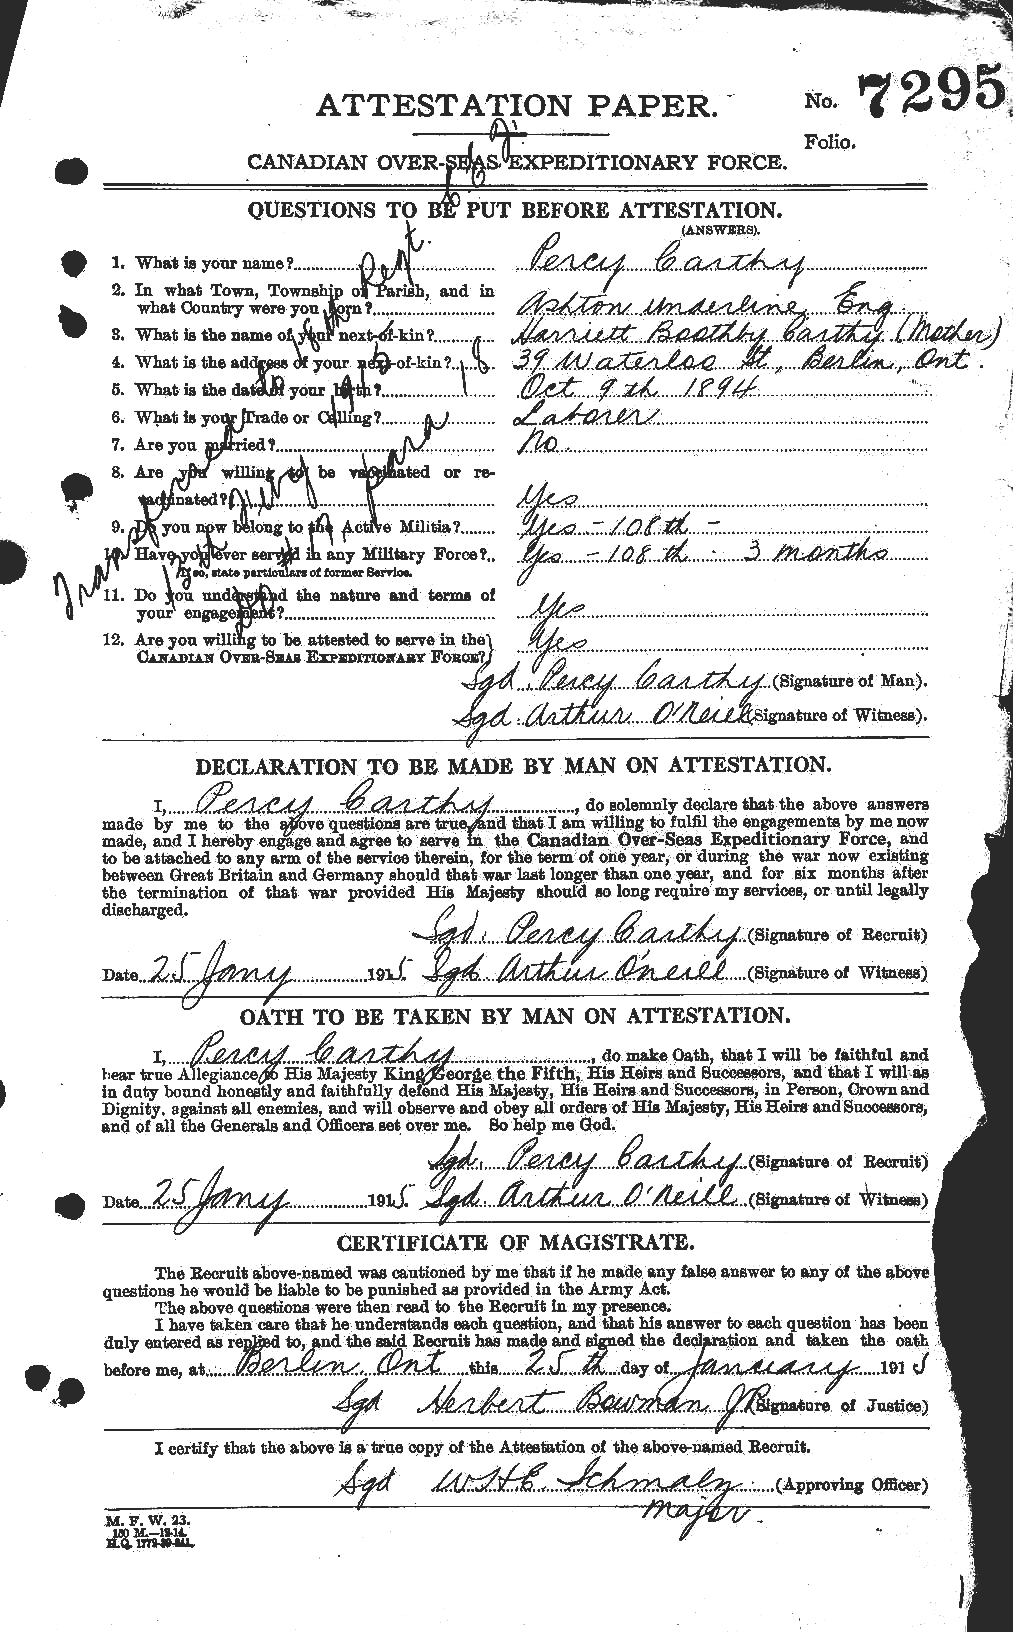 No. 7295
ATTESTATION PAPER.
Folio.
CANADIAN OVER-SEAS EXPEDITIONARY FORCE.
QUESTIONS TO BE PUT BEFORE ATTESTATION.
(ANSWERS).
1. What is your name? Percy Carthy
2. In what Town, Township or Parish, and in
what Country were you born? Ashton underline, Eng.
3. What is the name of your next-of-kin? Harriett Boothby Carthy (Mother)
4. What is the address of your next-of-kin? 39 Waterloo St, Berlin, Ont.
5. What is the date of your birth? Oct 9th 1894
6. What is your Trade or Calling? Laborer
7. Are you married? No.
8. Are you willing to be vaccinated or re-
vaccinated? Yes
9. Do you now belong to the Active Militia? Yes - 108th -
10. Have you ever served in any Military Force? Yes - 108th - 3 months
If so, state particulars of former Service.
11. Do you understand the nature and terms of
your engagement? Yes
12. Are you willing to be attested to serve in the
CANADIAN OVER-SEAS EXPEDITIONARY FORCE? Yes
Transferred to 18th Regt.
Sgd. Percy Carthy (Signature of Man).
Sgd. Arthur O'Neill (Signature of Witness).
DECLARATION TO BE MADE BY MAN ON ATTESTATION.
I, Percy Carthy, do solemnly declare that the above answers
made by me to the above questions are true, and that I am willing to fulfil the engagements by me now
made, and I hereby engage and agree to serve in the Canadian Over-Seas Expeditionary Force, and
to be attached to any arm of the service therein, for the term of one year, or during the war now existing
between Great Britain and Germany should that war last longer than one year, and for six months after
the termination of that war provided His Majesty should so long require my services, or until legally
discharged.
Sgd. Percy Carthy (Signature of Recruit)
Date 25 Jany 1915 Sgd. Arthur O'Neill (Signature of Witness)
OATH TO BE TAKEN BY MAN ON ATTESTATION.
I, Percy Carthy, do make Oath, that I will be faithful and
bear true Allegiance to His Majesty King George the Fifth, His Heirs and Successors, and that I will as
in duty bound honestly and faithfully defend His Majesty, His Heirs and Successors, in Person, Crown and
Dignity, against all enemies, and will observe and obey all orders of His Majesty, His Heirs and Successors,
and of all the Generals and Officers set over me. So help me God.
Sgd. Percy Carthy (Signature of Recruit)
Date 25 Jany 1915 Sgd. Arthur O'Neill (Signature of Witness)
CERTIFICATE OF MAGISTRATE.
The Recruit above-named was cautioned by me that if he made any false answer to any of the above
questions he would be liable to be punished as provided in the Army Act.
The above questions were then read to the Recruit in my presence.
I have taken care that he understands each question, and that his answer to each question has been
duly entered as replied to, and the said Recruit has made and signed the declaration and taken the oath
before me, at Berlin, Ont this 25th day of January 1915
Sgd Herbert Bowman JP (Signature of Justice)
I certify that the above is a true copy of the Attestation of the above-named Recruit.
Sgd W H E. Schmalz (Approving Officer)
Major.
M. F. W. 23.
150 M.—12-14.
H.Q. 1772-39-841.